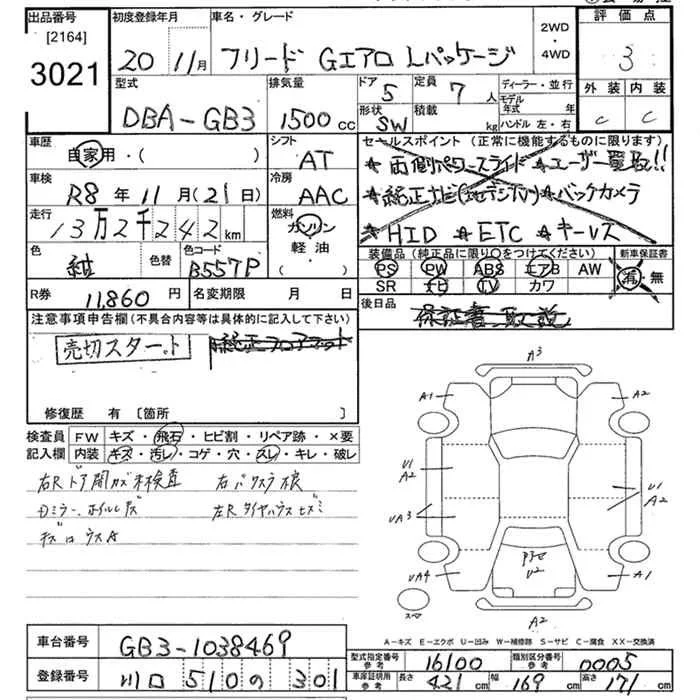 出品番号 初度登録年月 車名・グレード 評価点
[2164]
3021 20 11月 フリード Gエアロ Lパッケージ 2WD・4WD 3
型式 排気量 ドア 定員 ディーラー・並行 外装 内装
DBA-GB3 1500cc 5 7人 モデル年式 年 C C
形状 SW 積載 kg ハンドル 左・右
車歴 自家用・( ) シフト AT
セールスポイント(正常に機能するものに限ります)
★両側パワースライド ★ユーザー買取!!
車検 R8年11月(21日) 冷房 AAC
★純正ナビ(地デジTV) ★バックカメラ
走行 13万2千242km 燃料 ガソリン・軽油・( )
★HID ★ETC ★キーレス
色 紺 色替 色コード B557P
装備品(純正品に限り○をつけてください) 新車保証書
PS PW ABS エアB AW 有・無
SR ナビ TV カワ
R券 11,860円 名変期限 月 日
後日品 保証書、取説
注意事項申告欄(不具合内容等は具体的に記入して下さい)
売切スタート 純正フロアマット
修復歴 有 [箇所 ]
検査員 FW キズ・飛石・ヒビ割・リペア跡・×要
記入欄 内装 キズ・汚レ・コゲ・穴・スレ・キレ・破レ
右Rドア開カズ未検査
A3
A1 A2
U1 A2 U1 A2
UA3
UA4 A1
U2
A2
スペア
A-キズ E-エクボ U-凹み W-補修跡 S-サビ C-腐食 XX-交換済
車台番号 GB3-1038469
型式指定番号 参考 16100 類別区分番号 参考 0005
登録番号 川口 510 の 301
車庫証明用 参考 長さ 421cm 幅 169cm 高さ 171cm